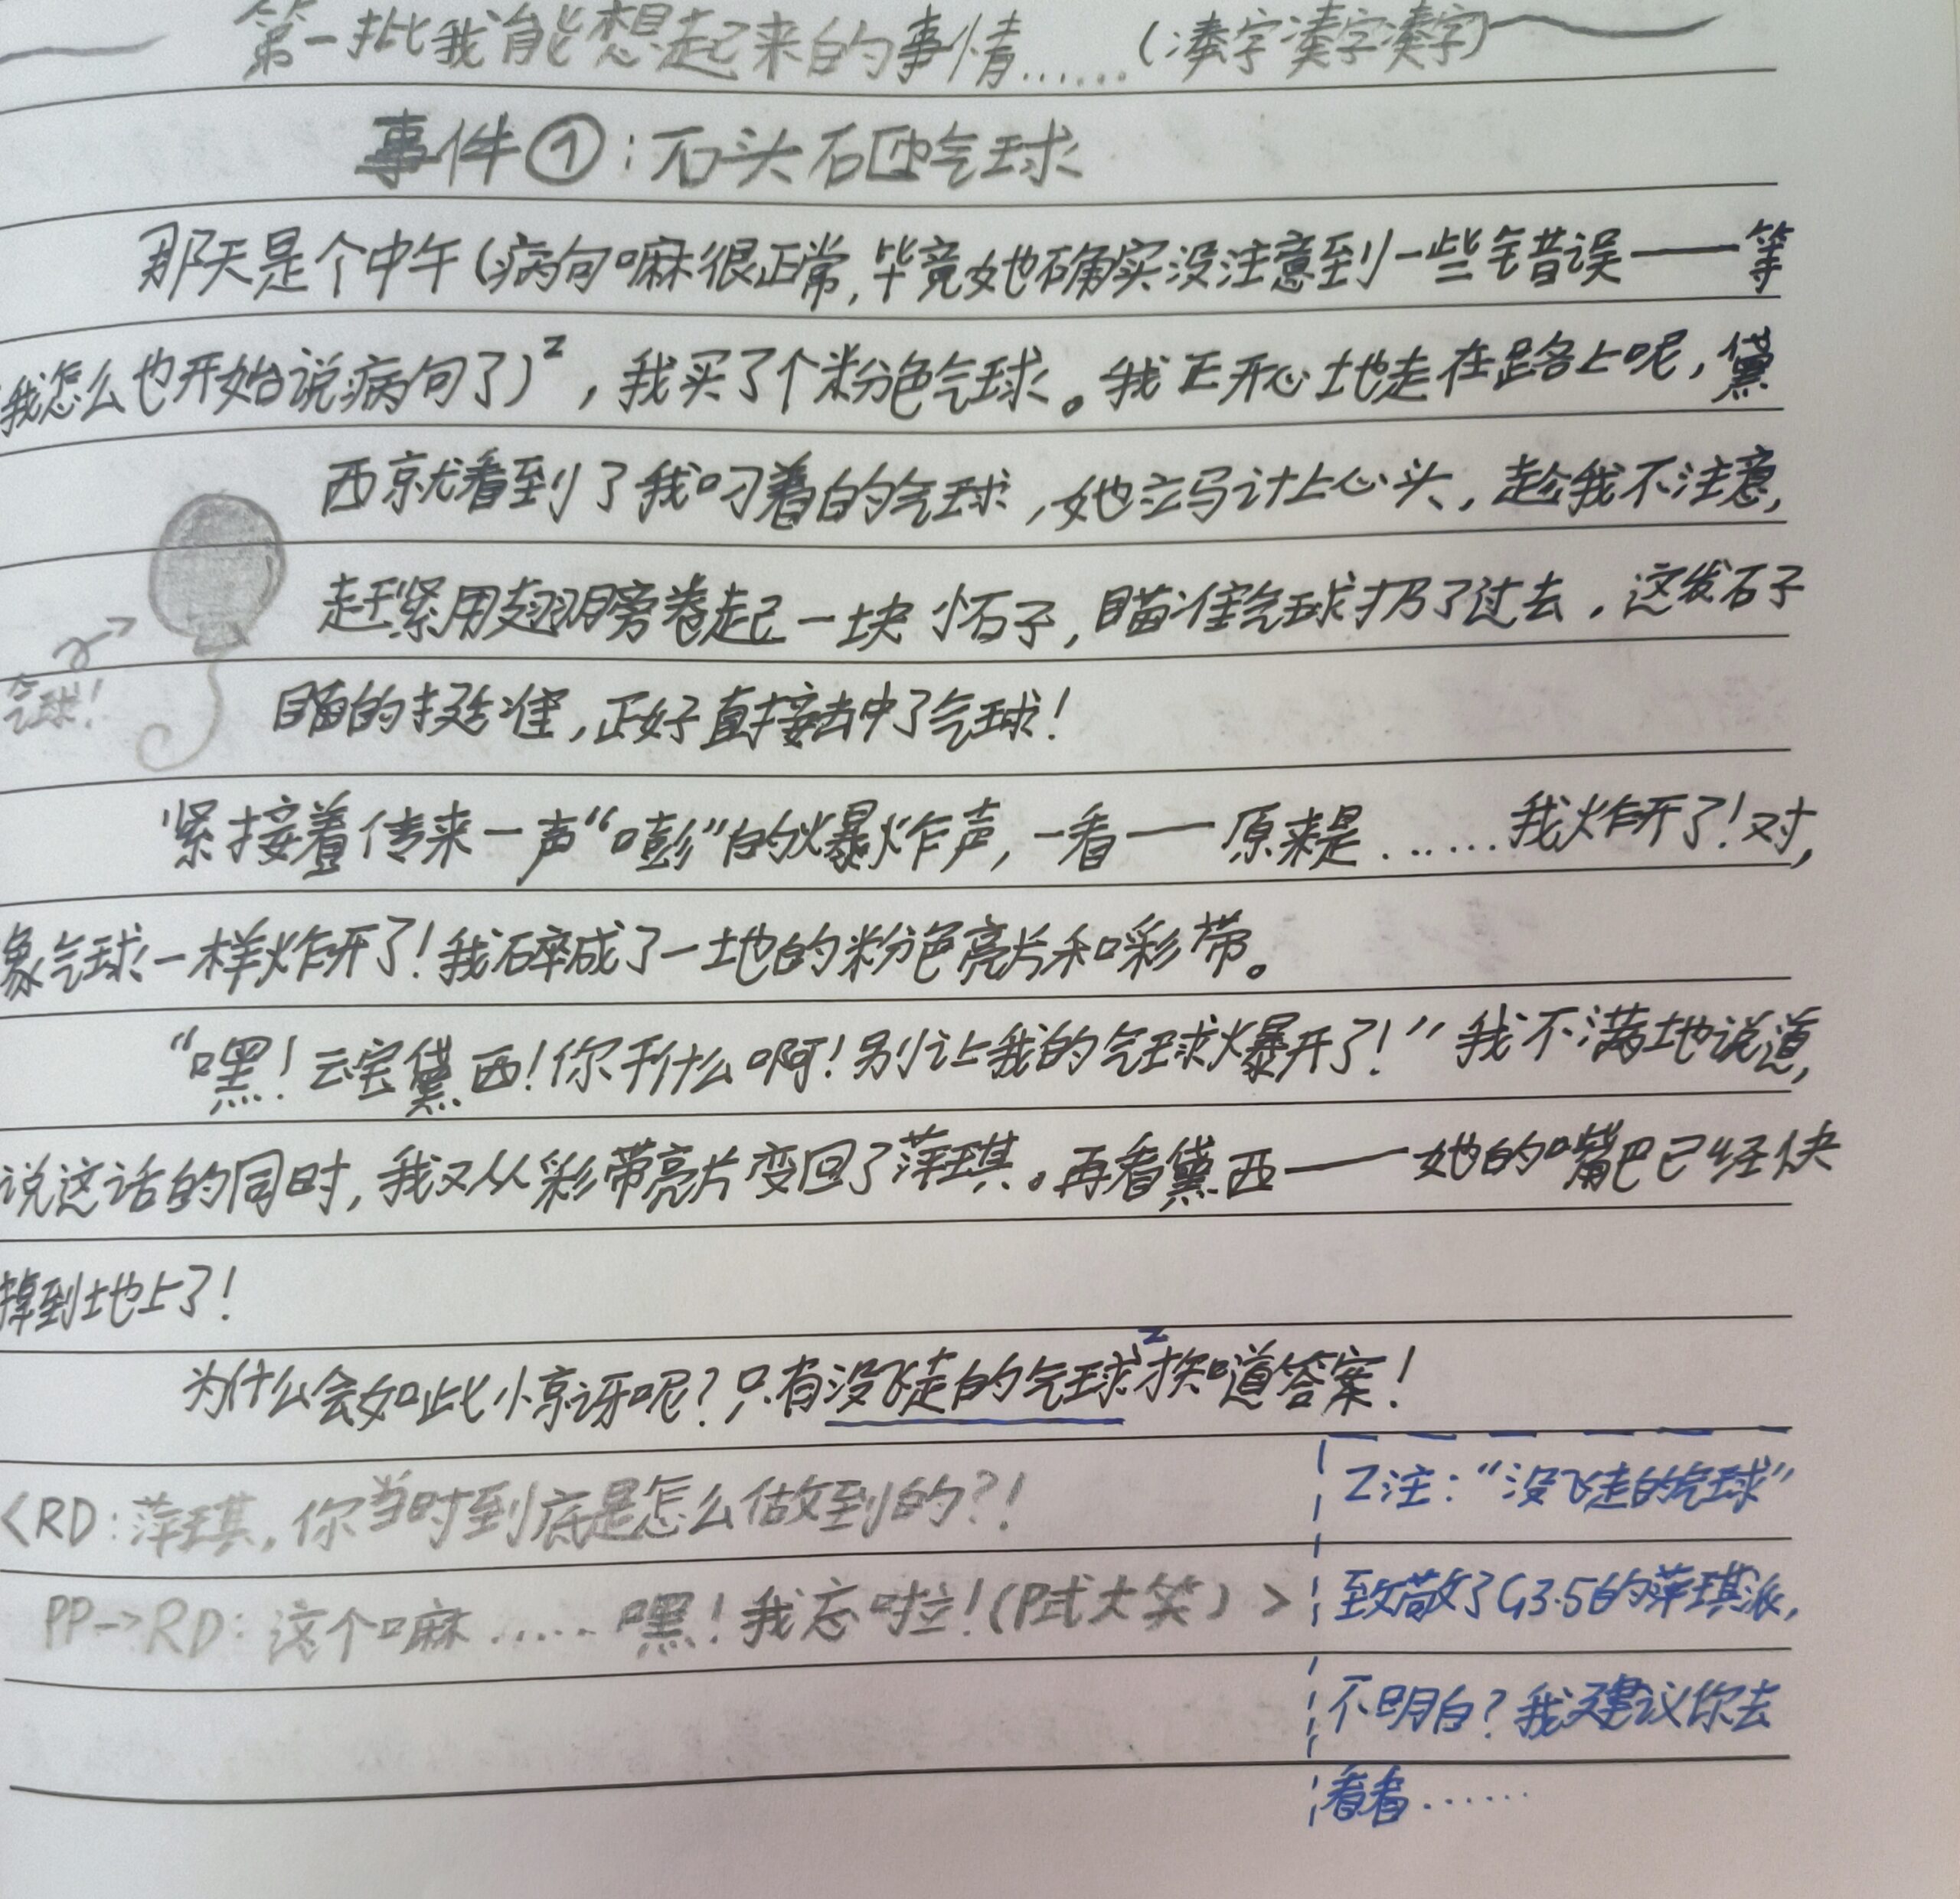 第一批我能想起来的事情……(凑字凑字凑字)
事件①:石头砸气球
那天是个中午(病句嘛很正常,毕竟她确实没注意到一些错误——等
我怎么也开始说病句了)²,我买了个粉色气球。我正开心地走在路上呢,黛
西就看到了我叼着的气球,她立马计上心头,趁我不注意,
赶紧用翅膀卷起一块小石子,瞄准气球扔了过去。这发石子
瞄的挺准,正好直接击中了气球!
气球!
紧接着传来一声“嘭”的爆炸声,一看——原来是……我炸开了!对,
象气球一样炸开了!我碎成了一地的粉色亮片和彩带。
“嘿!云宝黛西!你干什么啊!别让我的气球爆开了!”我不满地说道,
说这话的同时,我又从彩带亮片变回了萍琪。再看黛西——她的嘴巴已经快
掉到地上了!
为什么会如此惊讶呢?只有没飞走的气球²才知道答案!
<RD:萍琪,你当时到底是怎么做到的?!
PP->RD:这个嘛……嘿!我忘啦!(P式大笑)>
Z注:“没飞走的气球”
致敬了G3.5的萍琪派,
不明白?我建议你去
看看……